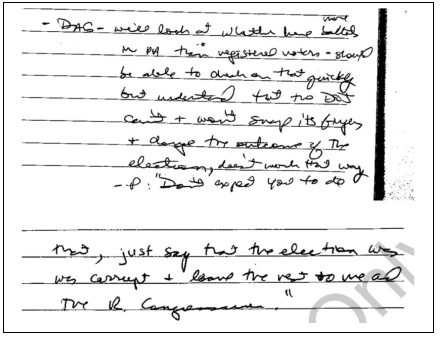 more
- DAG - will look at whether have ballots
in PA than registered voters - should
be able to check on that quickly
but understand that the DOJ
can't + won't snap its fingers
+ change the outcome of the
election, doesn't work that way
- P: "Don't expect you to do
that, just say that the election was
was corrupt + leave the rest to me and
the R. Congressmen."
Only